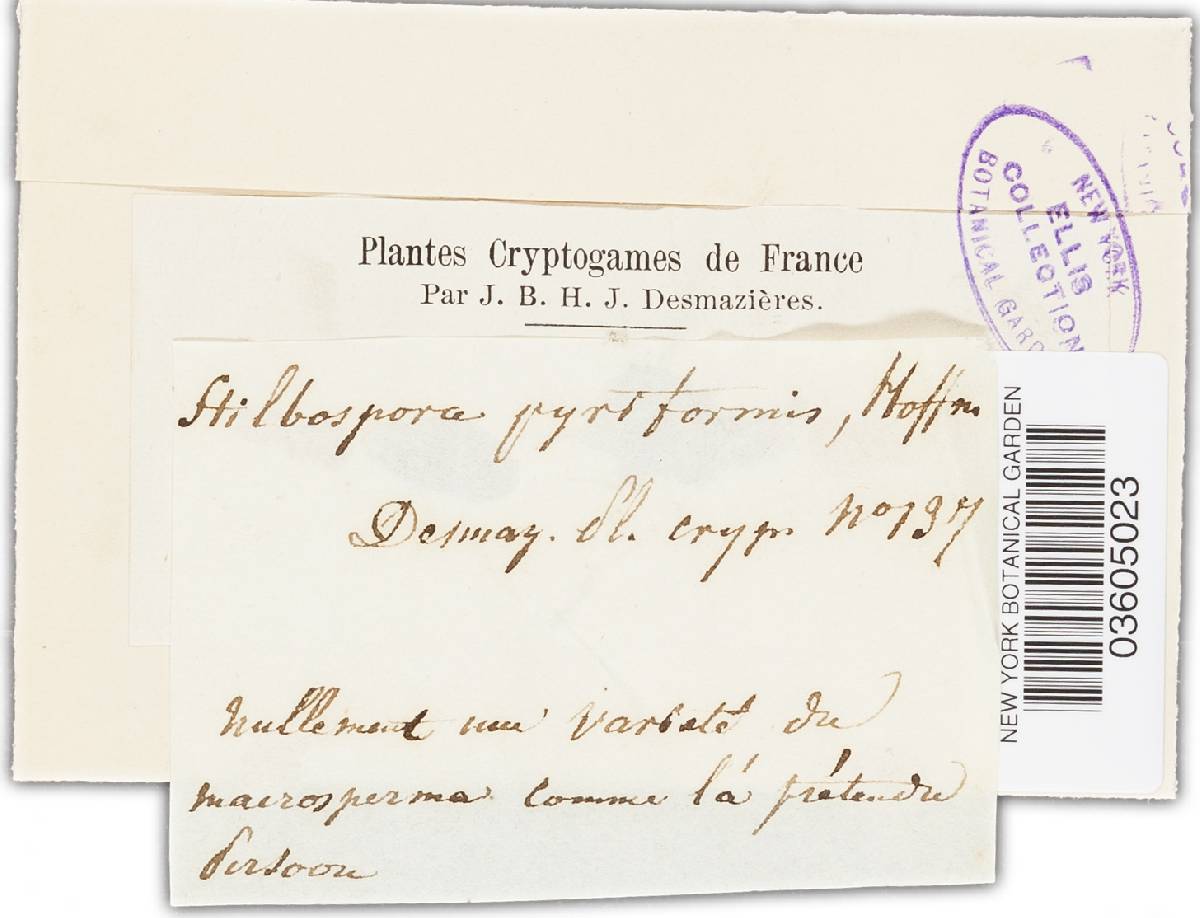 Plantes Cryptogames de France
Par J. B. H. J. Desmazières.
NEW YORK
ELLIS
COLLECTION
BOTANICAL GARD
Stilbospora pyriformis, Hoffm.
Desmaz. Pl. cryp. No 137
Nullement une variété du
macrosperma comme l'a prétendu
Persoon
NEW YORK BOTANICAL GARDEN
03605023